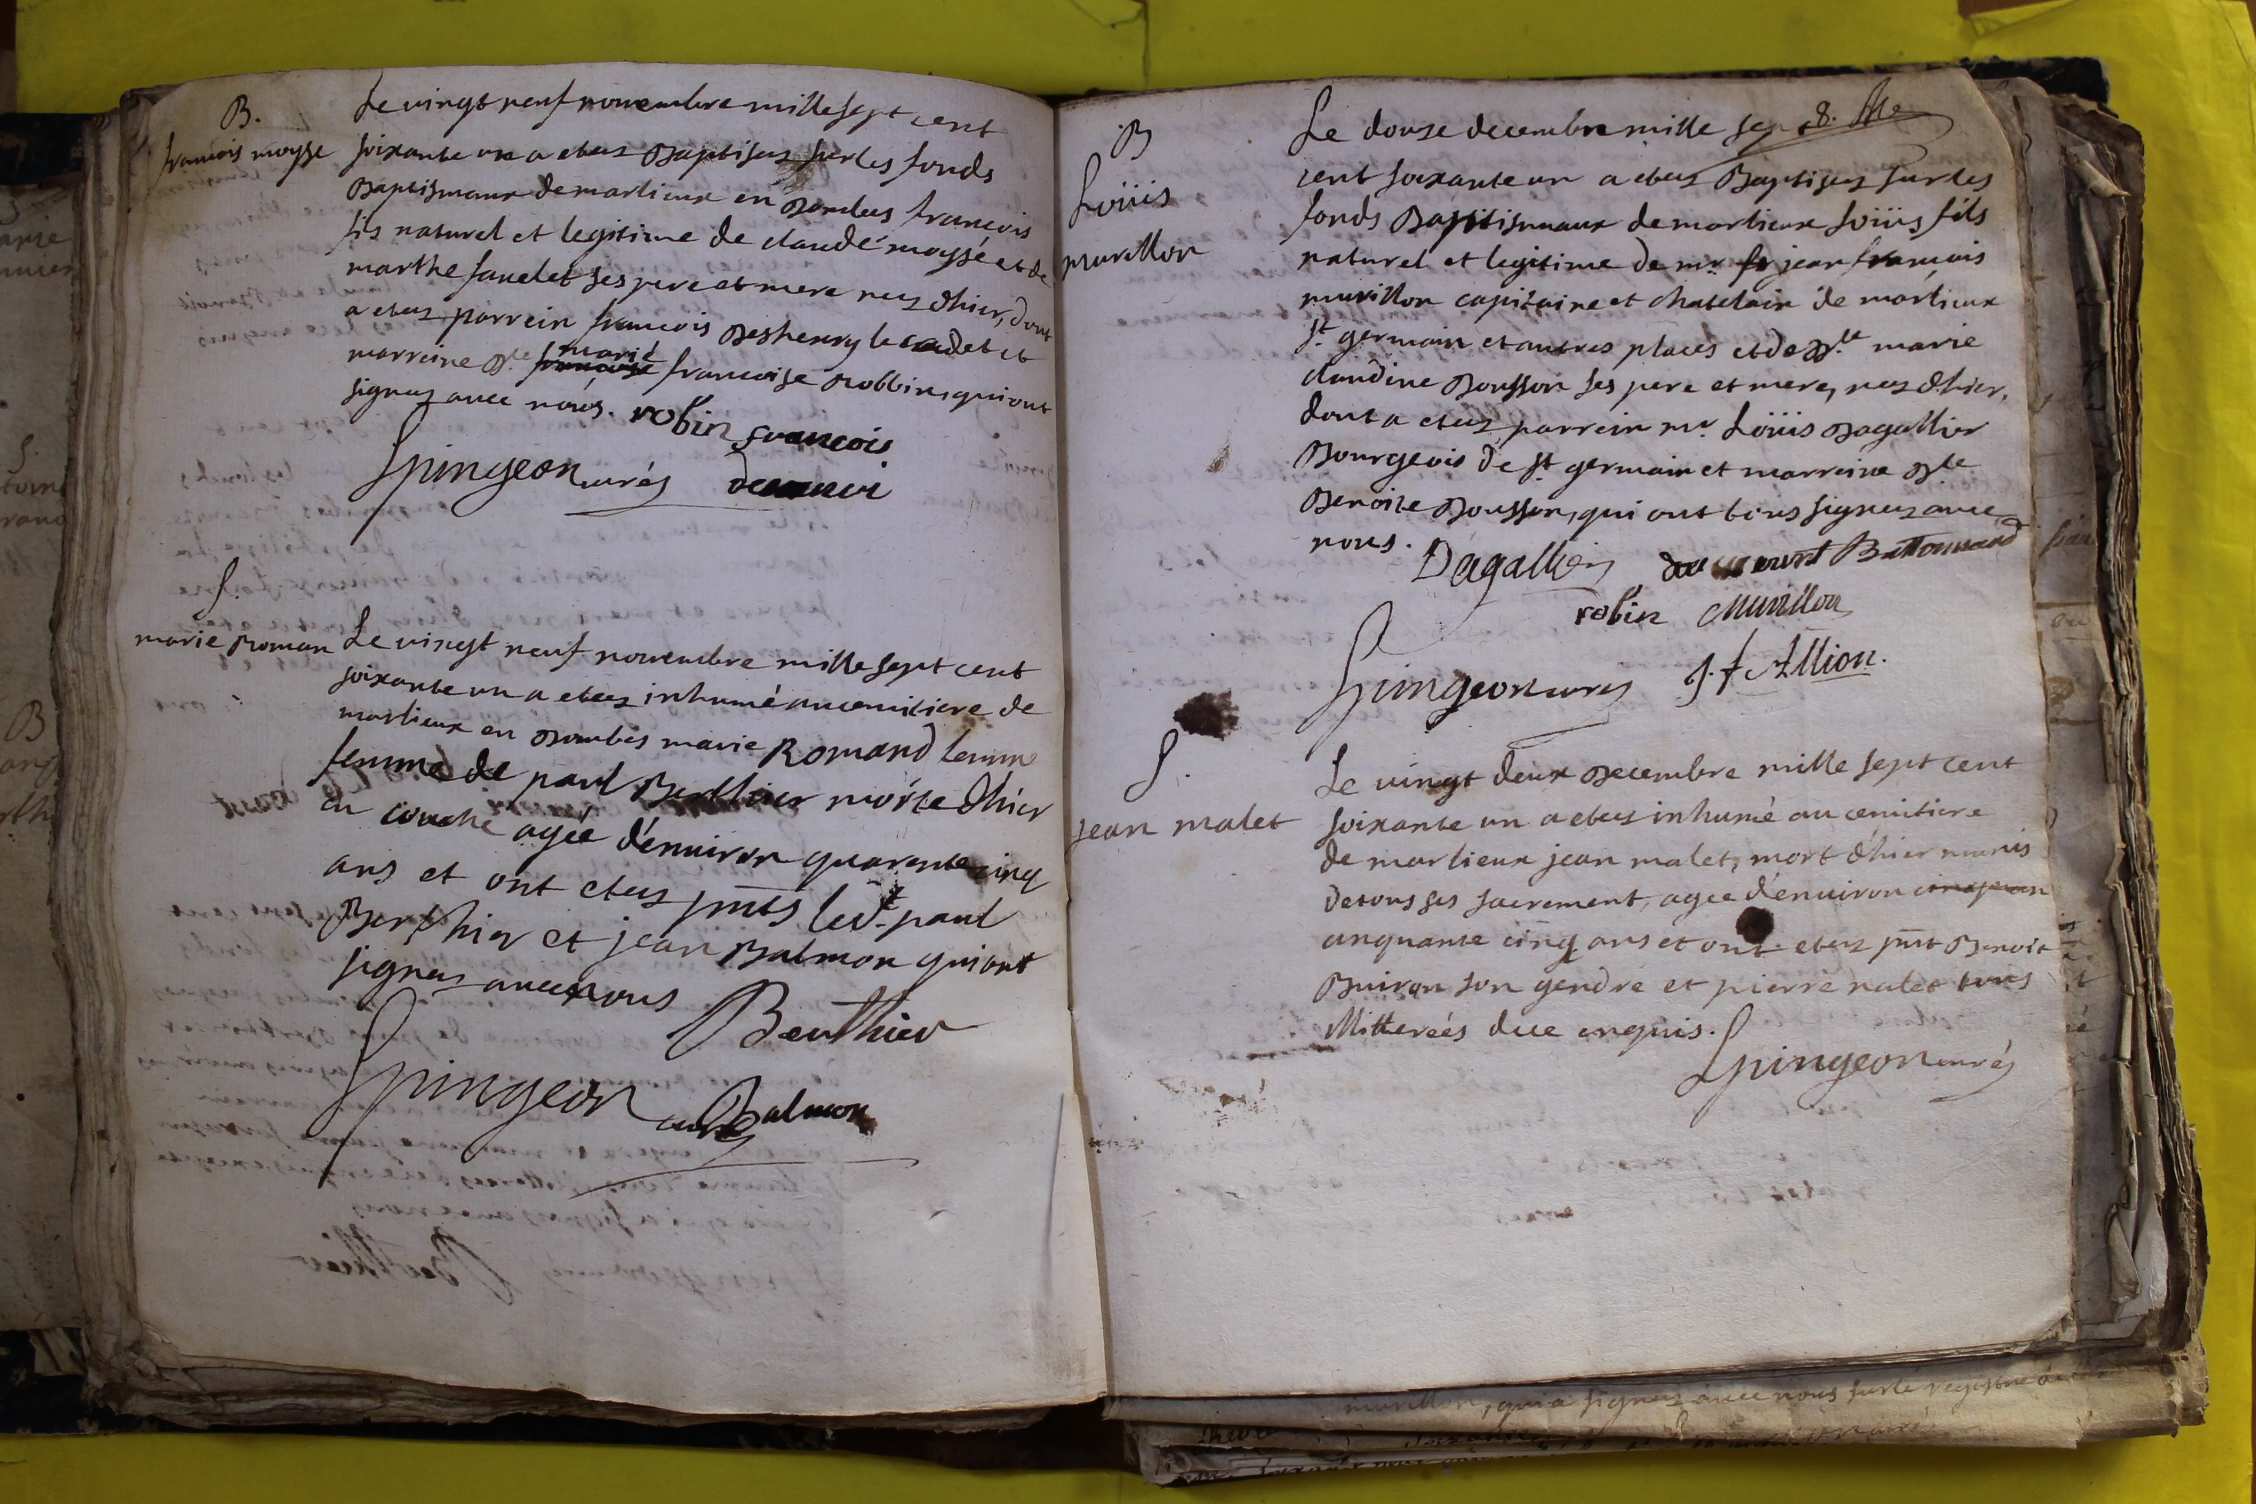 B.
francois moyse
Le vingt neuf novembre mille sept cent
soixante un a etez Baptisez sur les fonds
Baptismaux de marlieux en Dombes francois
fils naturel et legitime de claude moyse et de
marthe favelet ses pere et mere nez d'hier, dont
a etez parrein francois Deshenry le cadet et
marreine Dlle marie francoise Robbin, qui ont
signez avec nous. robin francois
Spingeon curéz
S.
marie Roman
Le vingt neuf novembre mille sept cent
soixante un a etez inhumé au cemitiere de
marlieux en Dombes marie Romand
femme de paul Berthier morte d'hier
en couche agée d'enuiron quarente cinq
ans et ont etez pnts led.t paul
Berthier et jean Balmon qui ont
signez avec nous
Berthier
Spingeon curéz Balmon
B
Loüis
murillon
8. Me
Le douze decembre mille sept
cent soixante un a etez Baptisez sur les
fonds Baptismaux de marlieux Loüis fils
naturel et legitime de mr. jean francois
murillon capitaine et chatelain de marlieux
St. germain et autres places et de Dlle marie
claudine Bousson ses pere et mere, nez d'hier,
dont a etez parrein mr. Loüis Dagallier
Bourgeois de St germain et marreine Dlle
Benoite Bousson, qui ont tous signez avec
nous. Dagallier
robin Murillon
Spingeon curéz J. f Allion.
S.
jean malet
Le vingt deux Decembre mille sept cent
soixante un a etez inhumé au cemitiere
de marlieux jean malet, mort d'hier munis
de tous ses sacrement, agee d'enuiron
cinquante cinq ans et ont etez pnt Benoit
Buiron son gendre et pierre malet tous
illitereés duë enquis.
Spingeon curéz
murillon, qui a signez avec nous sur le registre